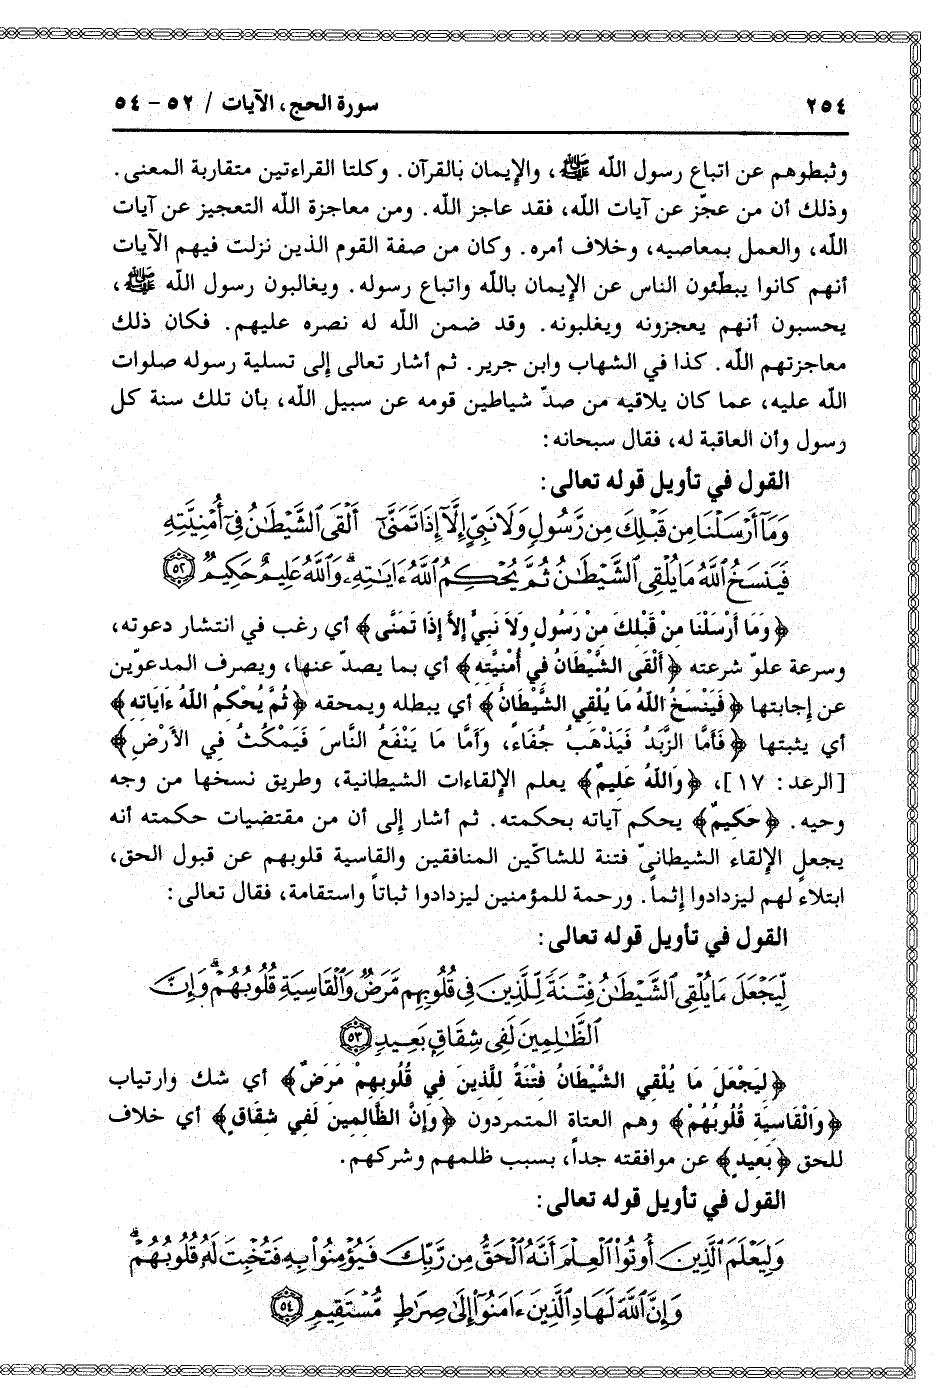 ٢٥٤ سورة الحج، الآيات / ٥٢ - ٥٤
وثبطوهم عن اتباع رسول الله ﷺ، والإيمان بالقرآن. وكلتا القراءتين متقاربة المعنى.
وذلك أن من عجّز عن آيات الله، فقد عاجز الله. ومن معاجزة الله التعجيز عن آيات
الله، والعمل بمعاصيه، وخلاف أمره. وكان من صفة القوم الذين نزلت فيهم الآيات
أنهم كانوا يبطّئون الناس عن الإيمان بالله واتباع رسوله. ويغالبون رسول الله ﷺ،
يحسبون أنهم يعجزونه ويغلبونه. وقد ضمن الله له نصره عليهم. فكان ذلك
معاجزتهم الله. كذا في الشهاب وابن جرير. ثم أشار تعالى إلى تسلية رسوله صلوات
الله عليه، عما كان يلاقيه من صدّ شياطين قومه عن سبيل الله، بأن تلك سنة كل
رسول وأن العاقبة له، فقال سبحانه:
القول في تأويل قوله تعالى:
وَمَآ أَرْسَلْنَا مِن قَبْلِكَ مِن رَّسُولٍ وَلَا نَبِيٍّ إِلَّآ إِذَا تَمَنَّىٰٓ أَلْقَى ٱلشَّيْطَٰنُ فِىٓ أُمْنِيَّتِهِۦ
فَيَنسَخُ ٱللَّهُ مَا يُلْقِى ٱلشَّيْطَٰنُ ثُمَّ يُحْكِمُ ٱللَّهُ ءَايَٰتِهِۦ ۗ وَٱللَّهُ عَلِيمٌ حَكِيمٌ ﴿٥٢﴾
﴿وَمَا أَرْسَلْنَا مِنْ قَبْلِكَ مِنْ رَسُولٍ وَلَا نَبِيٍّ إِلَّا إِذَا تَمَنَّى﴾ أي رغب في انتشار دعوته،
وسرعة علوّ شرعته ﴿أَلْقَى الشَّيْطَانُ فِي أُمْنِيَّتِهِ﴾ أي بما يصدّ عنها، ويصرف المدعوّين
عن إجابتها ﴿فَيَنْسَخُ اللَّهُ مَا يُلْقِي الشَّيْطَانُ﴾ أي يبطله ويمحقه ﴿ثُمَّ يُحْكِمُ اللَّهُ ءَايَاتِهِ﴾
أي يثبتها ﴿فَأَمَّا الزَّبَدُ فَيَذْهَبُ جُفَاء، وَأَمَّا مَا يَنْفَعُ النَّاسَ فَيَمْكُثُ فِي الأَرْضِ﴾
[الرعد: ١٧]، ﴿وَاللَّهُ عَلِيمٌ﴾ يعلم الإلقاءات الشيطانية، وطريق نسخها من وجه
وحيه. ﴿حَكِيمٌ﴾ يحكم آياته بحكمته. ثم أشار إلى أن من مقتضيات حكمته أنه
يجعل الإلقاء الشيطانيّ فتنة للشاكّين المنافقين والقاسية قلوبهم عن قبول الحق،
ابتلاء لهم ليزدادوا إثماً. ورحمة للمؤمنين ليزدادوا ثباتاً واستقامة، فقال تعالى:
القول في تأويل قوله تعالى:
لِّيَجْعَلَ مَا يُلْقِى ٱلشَّيْطَٰنُ فِتْنَةً لِّلَّذِينَ فِى قُلُوبِهِم مَّرَضٌ وَٱلْقَاسِيَةِ قُلُوبُهُمْ ۗ وَإِنَّ
ٱلظَّٰلِمِينَ لَفِى شِقَاقٍۭ بَعِيدٍ ﴿٥٣﴾
﴿لِيَجْعَلَ مَا يُلْقِي الشَّيْطَانُ فِتْنَةً لِلَّذِينَ فِي قُلُوبِهِمْ مَرَضٌ﴾ أي شك وارتياب
﴿وَالْقَاسِيَةِ قُلُوبُهُمْ﴾ وهم العتاة المتمردون ﴿وَإِنَّ الظَّالِمِينَ لَفِي شِقَاقٍ﴾ أي خلاف
للحق ﴿بَعِيدٍ﴾ عن موافقته جداً، بسبب ظلمهم وشركهم.
القول في تأويل قوله تعالى:
وَلِيَعْلَمَ ٱلَّذِينَ أُوتُوا۟ ٱلْعِلْمَ أَنَّهُ ٱلْحَقُّ مِن رَّبِّكَ فَيُؤْمِنُوا۟ بِهِۦ فَتُخْبِتَ لَهُۥ قُلُوبُهُمْ ۗ
وَإِنَّ ٱللَّهَ لَهَادِ ٱلَّذِينَ ءَامَنُوٓا۟ إِلَىٰ صِرَٰطٍ مُّسْتَقِيمٍ ﴿٥٤﴾